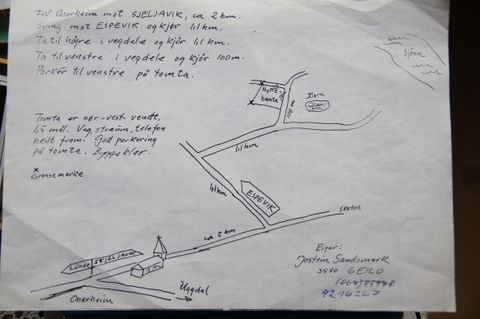 Frå Onarheim mot SJELJAVIK, ca 2 km.
Sving mot ESPEVIK og kjør 1,1 km.
Ta til høgre i vegdele og kjör 1,1 km.
Ta til venstre i vegdele og kjör 100m.
Parker til venstre på tomta.
Sjöen
Hytte-
tomta
100 m
Tjern
Tomta er sør-vest vendt,
1,5 mål. Veg, straum, telefon
heilt fram. God parkering
på tomta. Byggeklar.
x Grensemerke
1,1 km
1,1 km
ESPEVIK
Skolen
ca 2 km
LUNDE SJELJAVIK
Onarheim
Uggdal
Eigar:
Jostein Sandsmark
3580 GEILO